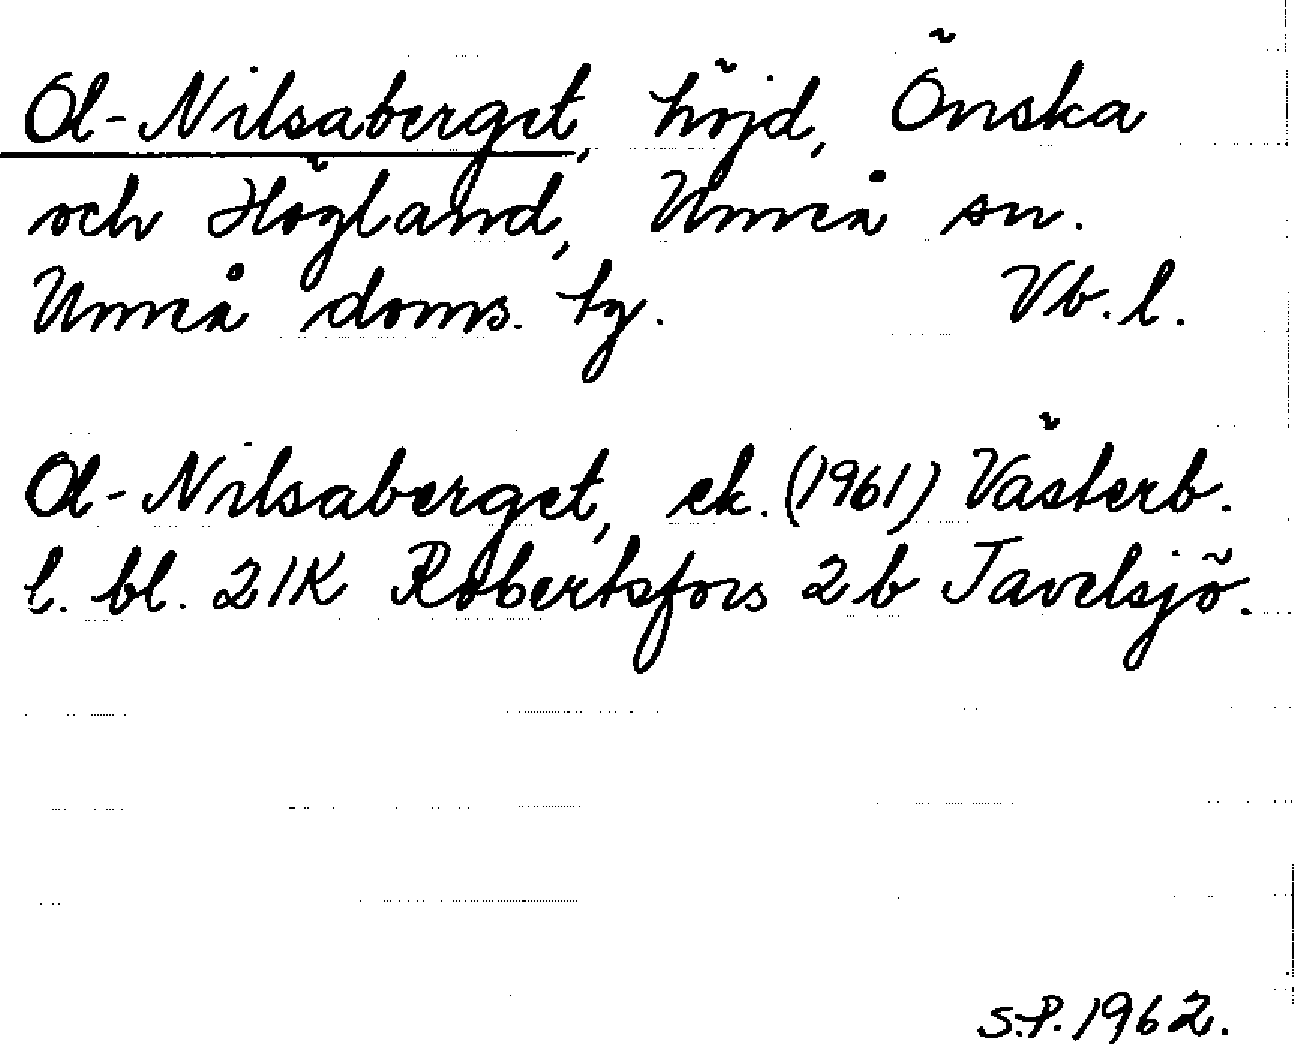 Ol-Nilsaberget, höjd, Önska
och Högland, Umeå sn.
Umeå doms. tg. Vb. l.
Ol-Nilsaberget, ek. (1961) Västerb.
l. bl. 21K Robertsfors 2b Tavelsjö.
S.P. 1962.